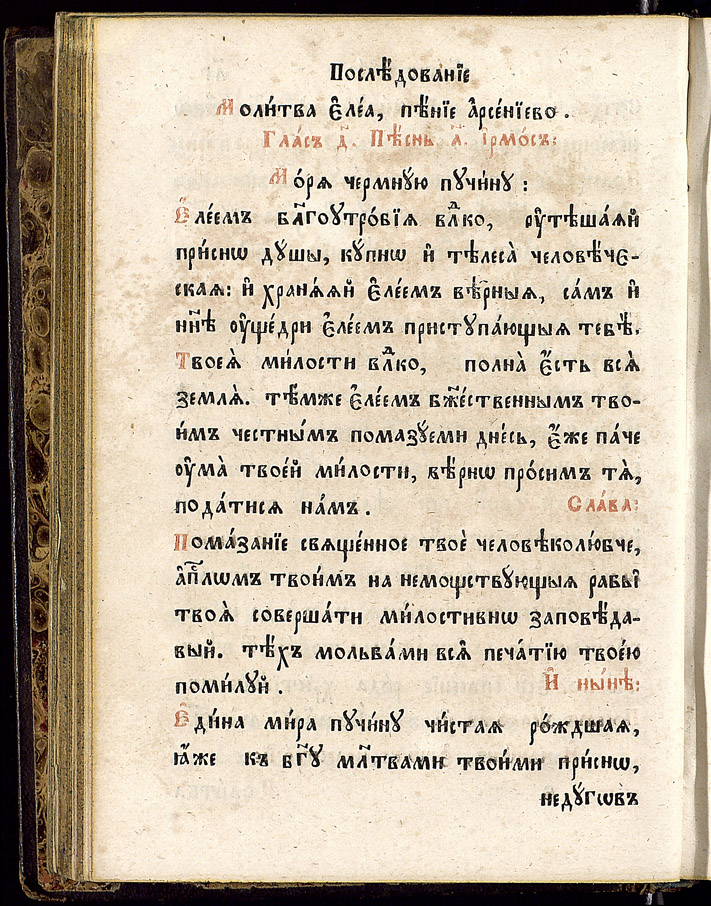 Послѣ́дованїе
Моли́тва є҆ле́а, пѣ́нїе а҆рсе́нїево.
Гла́съ д҃. Пѣ́снь а҃. і҆рмо́съ:
Мо́рѧ чермну́ю пꙋчи́нꙋ:
Є҆ле́емъ бл҃гоꙋтро́бїѧ влⷣко, ᲂу҆тѣша́ѧй
при́снѡ дꙋ́шы, кꙋ́пнѡ и҆ тѣлеса̀ человѣ́че-
скаѧ: и҆ хранѧ́ѧй є҆ле́емъ вѣ́рныѧ, са́мъ и҆
нн҃ѣ ᲂу҆ще́дри є҆ле́емъ пристꙋпа́ющыѧ тебѣ̀.
Твоеѧ̀ ми́лости влⷣко, полна̀ є҆́сть всѧ̀
землѧ̀. тѣ́мже є҆ле́емъ бж҃е́ственнымъ тво-
и́мъ честны́мъ помазꙋ́еми дне́сь, є҆́же па́че
ᲂу҆ма̀ твое́й ми́лости, вѣ́рнѡ про́симъ тѧ̀,
пода́тисѧ на́мъ. Сла́ва:
Пома́занїе свѧще́нное твоѐ человѣколю́бче,
а҆пⷭ҇лѡмъ твои́мъ на немощствꙋ́ющыѧ рабы̑
твоѧ̀ соверша́ти ми́лостивнѡ заповѣ́да-
вый. тѣ́хъ мольба́ми всѧ̑ печа́тїю твое́ю
поми́лꙋй. И҆ ны́нѣ:
Є҆ди́на ми́ра пꙋчи́нꙋ чи́стаѧ ро́ждшаѧ,
ꙗ҆́же къ бг҃ꙋ мл҃твами твои́ми при́снѡ,
недꙋ́гѡвъ